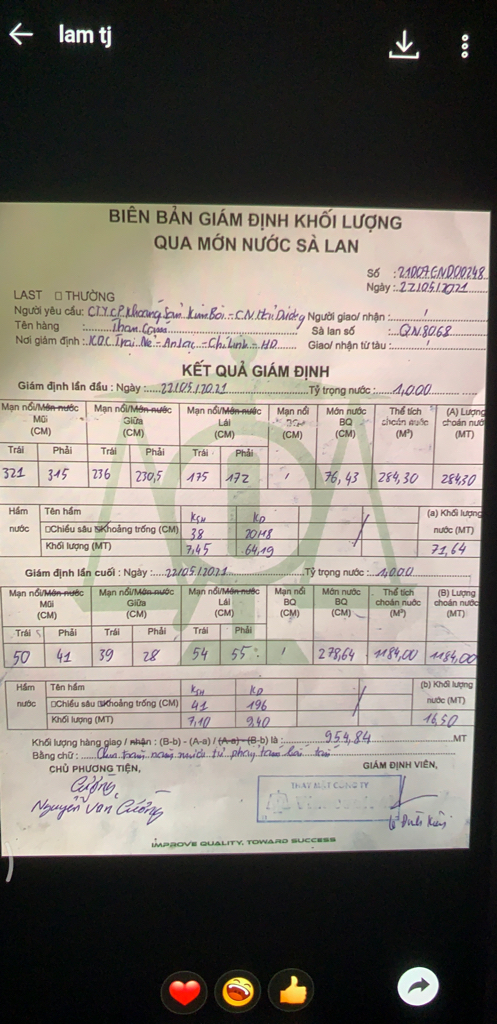 lam tj
BIÊN BẢN GIÁM ĐỊNH KHỐI LƯỢNG
QUA MỚN NƯỚC SÀ LAN
Số : 21D07.GND00248
Ngày: 22/05/2021
LAST □ THƯỜNG
Người yêu cầu: CTY CP Khoáng Sản Kim Bôi - CN Hải Dương Người giao/ nhận : /
Tên hàng : Than Cám Sà lan số : QN8068
Nơi giám định : KDC Trại Nẻ - An Lạc - Chí Linh - HD Giao/ nhận từ tàu : /
KẾT QUẢ GIÁM ĐỊNH
Giám định lần đầu : Ngày: 22/05/2021 Tỷ trọng nước : 1,000
Mạn nổi/Món nước Mũi (CM) Mạn nổi/Món nước Giữa (CM) Mạn nổi/Món nước Lái (CM) Mạn nổi (CM) Món nước BQ (CM) Thể tích choán nước (M³) (A) Lượng choán nước (MT)
Trái Phải Trái Phải Trái Phải
321 315 236 230,5 175 172 / 76,43 284,30 284,30
Hầm nước Tên hầm (a) Khối lượng nước (MT)
□Chiều sâu Khoảng trống (CM) 38
Khối lượng (MT) 7,45 64,19 71,64
Giám định lần cuối : Ngày: 22/05/2021 Tỷ trọng nước : 1,000
Mạn nổi/Món nước Mũi (CM) Mạn nổi/Món nước Giữa (CM) Mạn nổi/Món nước Lái (CM) Mạn nổi BQ (CM) Món nước BQ (CM) Thể tích choán nước (M³) (B) Lượng choán nước (MT)
Trái Phải Trái Phải Trái Phải
50 41 39 28 54 55 / 278,64 1184,00 1184,00
Hầm nước Tên hầm (b) Khối lượng nước (MT)
□Chiều sâu Khoảng trống (CM) 41 196
Khối lượng (MT) 7,10 9,40 16,50
Khối lượng hàng giao / nhận : (B-b) - (A-a) / (A-a) - (B-b) là : 954,84 MT
Bằng chữ : Chín trăm năm mươi tư phẩy tám bốn tấn
CHỦ PHƯƠNG TIỆN, GIÁM ĐỊNH VIÊN,
THAY MẶT CÔNG TY
Cường
Nguyễn Văn Cường
IMPROVE QUALITY, TOWARD SUCCESS